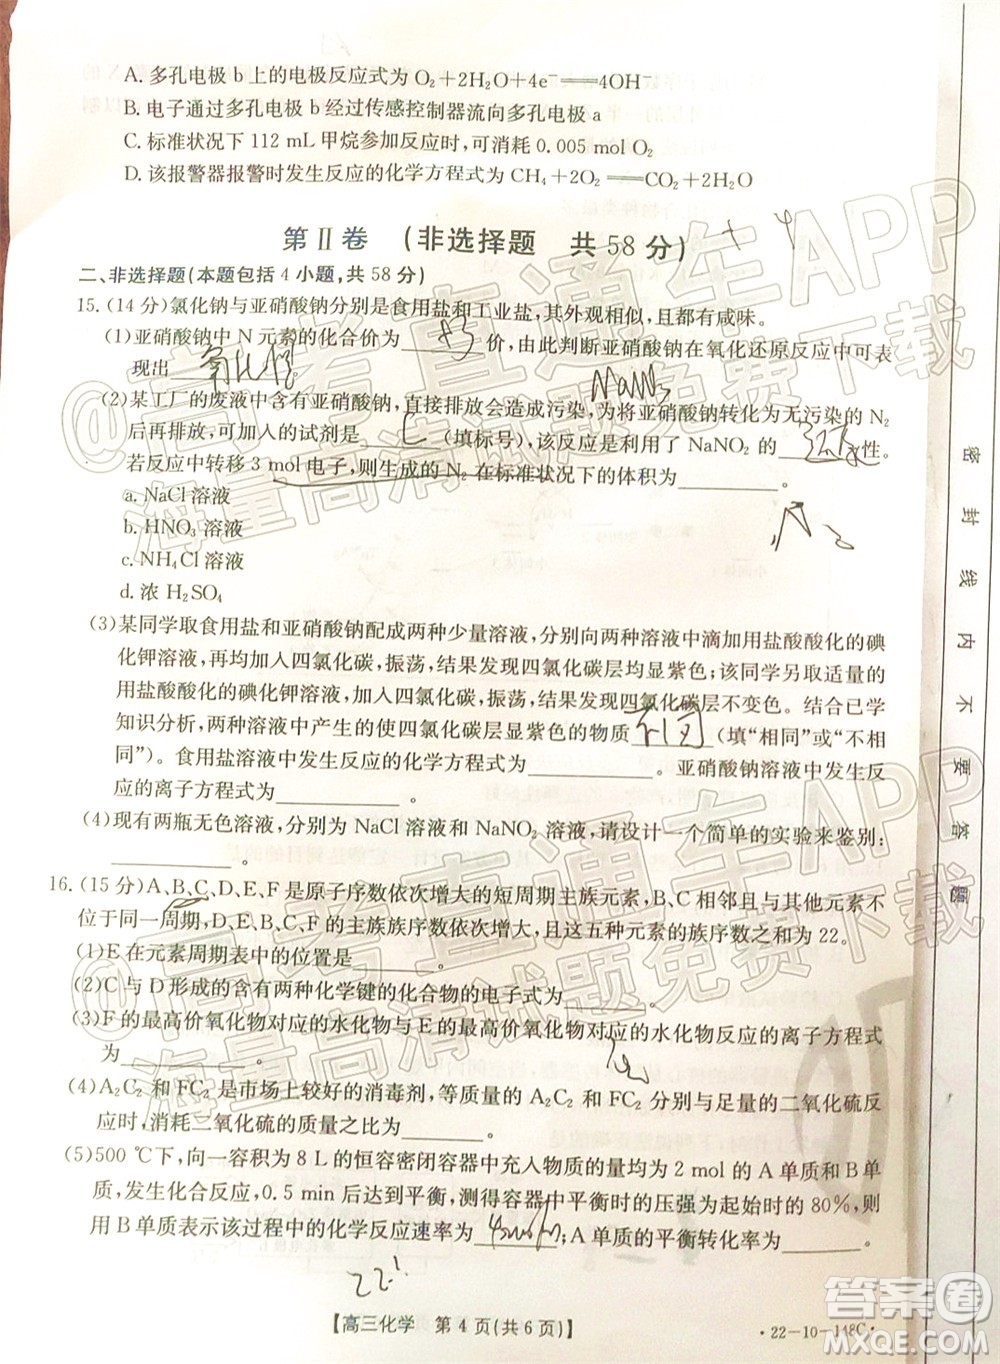 A. 多孔电极 b 上的电极反应式为 O₂+2H₂O+4e⁻══4OH⁻
B. 电子通过多孔电极 b 经过传感控制器流向多孔电极 a
C. 标准状况下 112 mL 甲烷参加反应时,可消耗 0.005 mol O₂
D. 该报警器报警时发生反应的化学方程式为 CH₄+2O₂══CO₂+2H₂O
第Ⅱ卷 (非选择题 共 58 分)
二、非选择题(本题包括 4 小题,共 58 分)
15. (14 分)氯化钠与亚硝酸钠分别是食用盐和工业盐,其外观相似,且都有咸味。
(1)亚硝酸钠中 N 元素的化合价为 +3 价,由此判断亚硝酸钠在氧化还原反应中可表
现出 氧化性
NaNO₂
(2)某工厂的废液中含有亚硝酸钠,直接排放会造成污染,为将亚硝酸钠转化为无污染的 N₂
后再排放,可加入的试剂是 C (填标号),该反应是利用了 NaNO₂ 的 还原 性。
若反应中转移 3 mol 电子,则生成的 N₂ 在标准状况下的体积为________。
a. NaCl 溶液
b. HNO₃ 溶液
c. NH₄Cl 溶液
d. 浓 H₂SO₄
(3)某同学取食用盐和亚硝酸钠配成两种少量溶液,分别向两种溶液中滴加用盐酸酸化的碘
化钾溶液,再均加入四氯化碳,振荡,结果发现四氯化碳层均显紫色;该同学用适量的
用盐酸酸化的碘化钾溶液,加入四氯化碳,振荡,结果发现四氯化碳层不变色。结合已学
知识分析,两种溶液中产生的使四氯化碳层显紫色的物质 不同 (填“相同”或“不相
同”)。食用盐溶液中发生反应的化学方程式为________。亚硝酸钠溶液中发生反
应的离子方程式为________。
(4)现有两瓶无色溶液,分别为 NaCl 溶液和 NaNO₂ 溶液,请设计一个简单的实验来鉴别:
________。
16. (15 分)A、B、C、D、E、F 是原子序数依次增大的短周期主族元素,B、C 相邻且与其他元素不
位于同一周期,D、E、F 的主族族序数依次增大,且这五种元素的族序数之和为 22。
(1)E 在元素周期表中的位置是________。
(2)C 与 D 形成的含有两种化学键的化合物的电子式为________。
(3)F 的最高价氧化物对应的水化物与 E 的最高价氧化物对应的水化物反应的离子方程式
为________。
(4)A₂C₂ 和 FC₂ 是市场上较好的消毒剂,等质量的 A₂C₂ 和 FC₂ 分别与足量的二氧化硫反
应时,消耗二氧化硫的质量之比为________。
(5)500 ℃下,向一容积为 8 L 的恒容密闭容器中充入物质的量均为 2 mol 的 A 单质和 B 单
质,发生化合反应,0.5 min 后达到平衡,测得容器中平衡时的压强为起始时的 80%,则
用 B 单质表示该过程中的化学反应速率为________;A 单质的平衡转化率为________。
【高三化学 第 4 页(共 6 页)】
·22-10-148C·
密封线内不要答题
@高考直通车APP
海量高清试题免费下载
@高考直通车APP
海量高清试题免费下载
答案圈
MXQE.COM